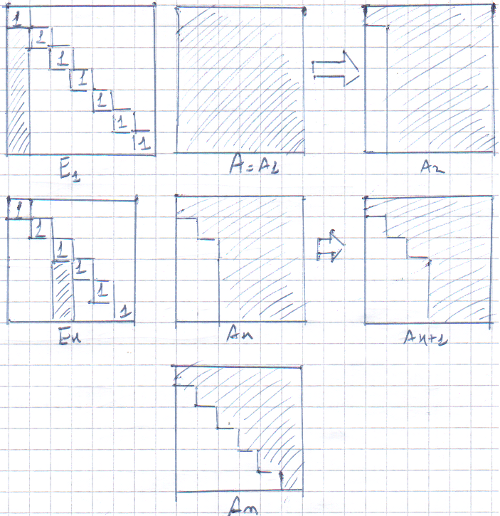 1
1
1
1
1
1
1
E1 A=A1 A2
1
1
1
1
1
1
Ek Ak Ak+1
An